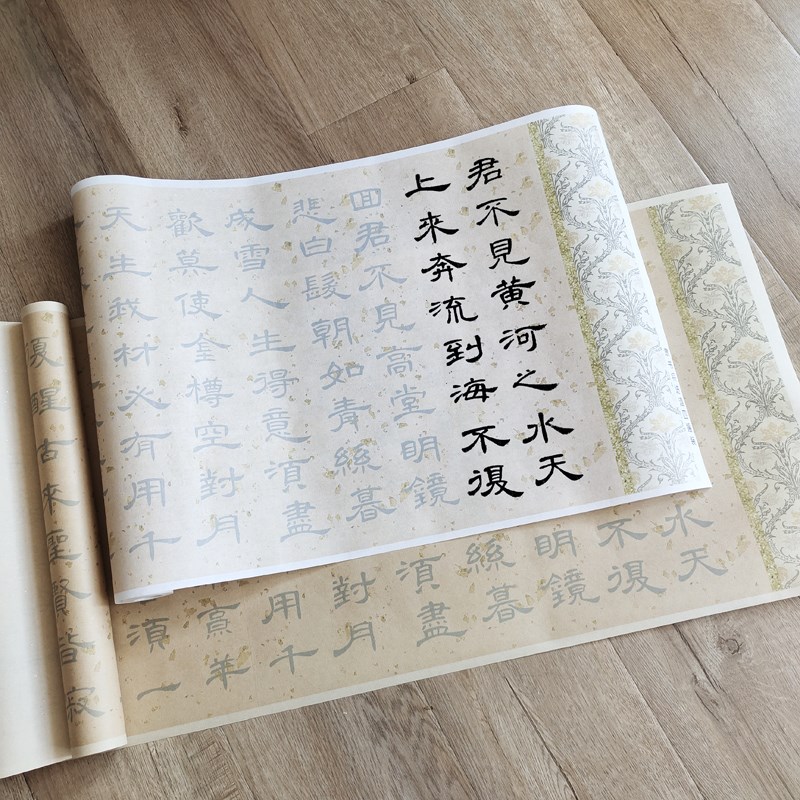 君不見黄河之水天
上來奔流到海不復
回君不見高堂明鏡
悲白髮朝如青絲暮
成雪人生得意湏盡
歡莫使金樽空對月
天生我材必有用千
水天
不復
明鏡
絲暮
湏盡
對月
用千
烹羊
湏一
復醒古來聖賢皆寂